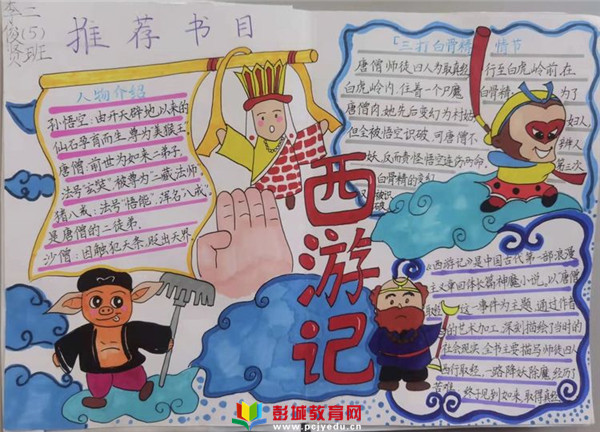 李三
俊(5)
贤班
推荐书目
人物介绍
孙悟空：由开天辟地以来的
仙石孕育而生尊为美猴王。
唐僧：前世为如来二弟子，
法号“玄奘”，被尊为三藏法师。
猪八戒：法号“悟能”，浑名八戒，
是唐僧的二徒弟。
沙僧：因触犯天条，贬出天界。
西游记
「三打白骨精」情节
唐僧师徒四人为取真经，行至白虎岭前。在
白虎岭内，住着一个尸魔 白骨精
为了
唐僧肉，她先后变幻为村姑
妇人
但全被悟空识破，可唐僧不
辨人
妖，反而责怪悟空连伤两命，
第三次
白骨精的
识破
《西游记》是中国古代第一部浪漫
主义章回体长篇神魔小说。以唐僧
取经 这一事件为主题，通过作者
的艺术加工，深刻描绘了当时的
社会现实，全书主要描写师徒四人
西行取经，一路降妖除魔，经历了
苦难，终于见到如来，取得真经
彭城教育网
www.pcjyedu.cn